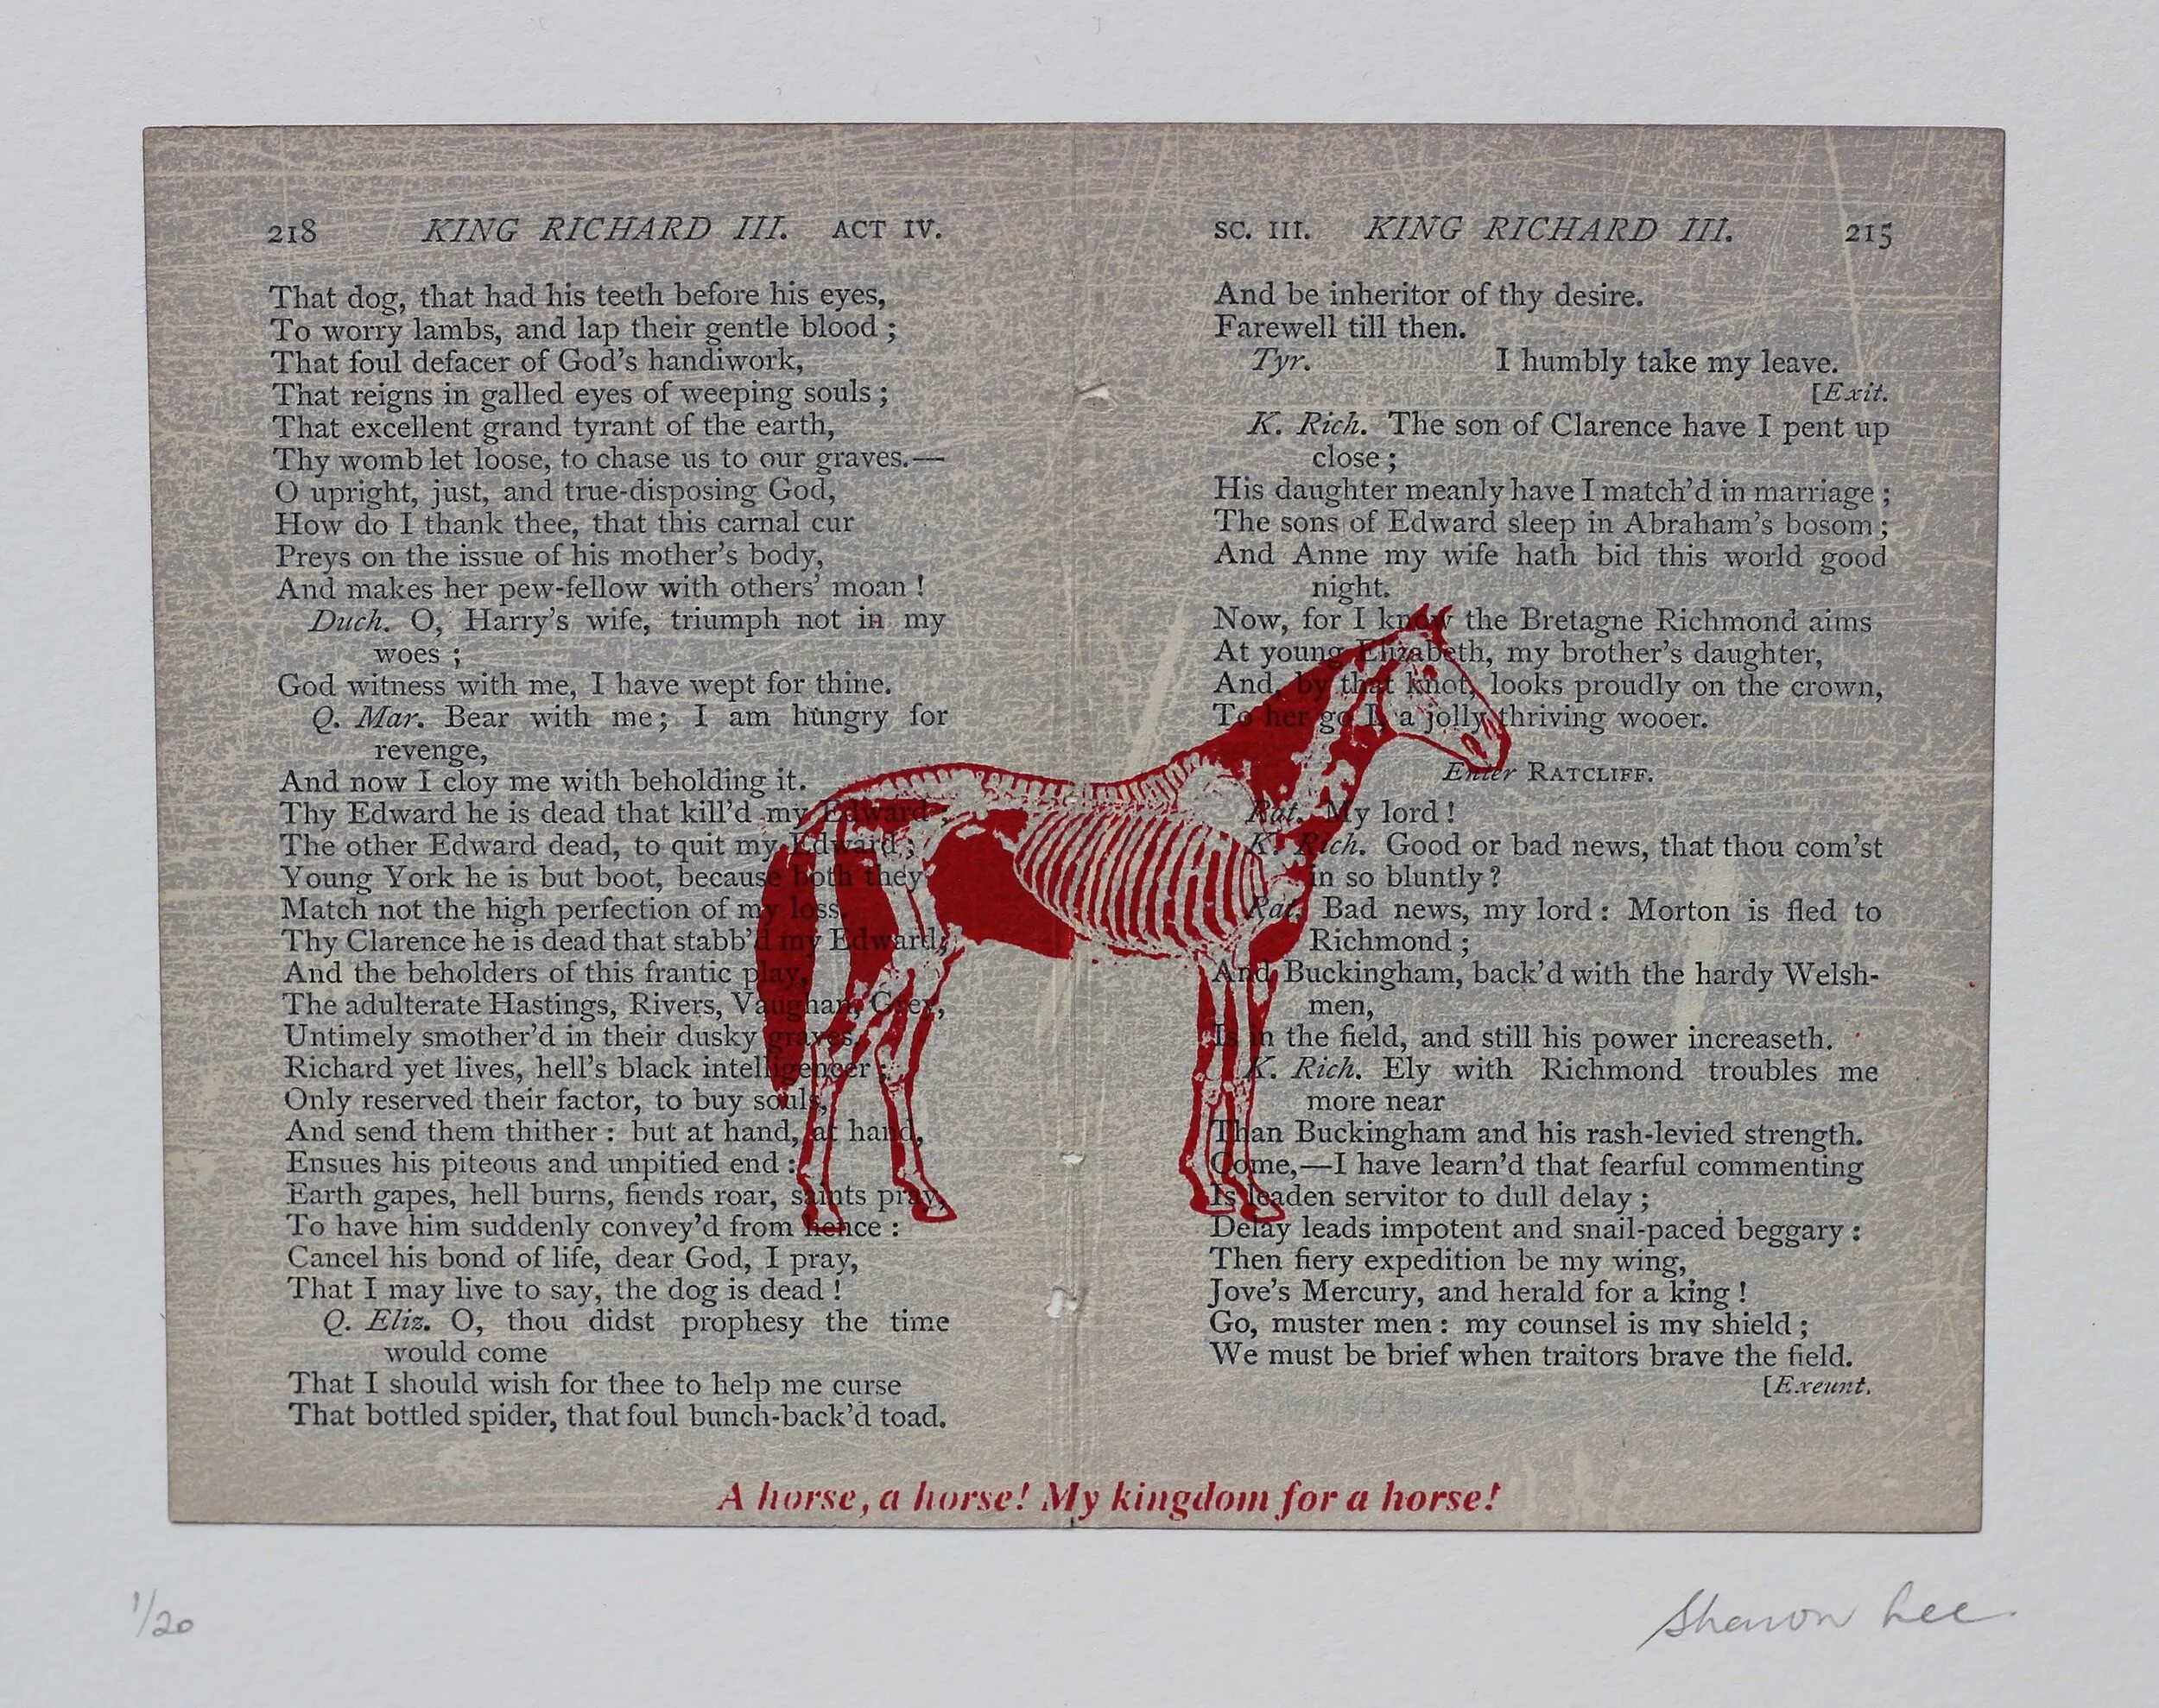 218 KING RICHARD III. ACT IV.
That dog, that had his teeth before his eyes,
To worry lambs, and lap their gentle blood ;
That foul defacer of God's handiwork,
That reigns in galled eyes of weeping souls ;
That excellent grand tyrant of the earth,
Thy womb let loose, to chase us to our graves.—
O upright, just, and true-disposing God,
How do I thank thee, that this carnal cur
Preys on the issue of his mother's body,
And makes her pew-fellow with others' moan !
Duch. O, Harry's wife, triumph not in my
woes ;
God witness with me, I have wept for thine.
Q. Mar. Bear with me; I am hungry for
revenge,
And now I cloy me with beholding it.
Thy Edward he is dead that kill'd my Edward ;
The other Edward dead, to quit my Edward ;
Young York he is but boot, because both they
Match not the high perfection of my loss.
Thy Clarence he is dead that stabb'd my Edward;
And the beholders of this frantic play,
The adulterate Hastings, Rivers, Vaughan, Grey,
Untimely smother'd in their dusky graves.
Richard yet lives, hell's black intelligencer ;
Only reserved their factor, to buy souls,
And send them thither : but at hand, at hand,
Ensues his piteous and unpitied end :
Earth gapes, hell burns, fiends roar, saints pray,
To have him suddenly convey'd from hence :
Cancel his bond of life, dear God, I pray,
That I may live to say, the dog is dead !
Q. Eliz. O, thou didst prophesy the time
would come
That I should wish for thee to help me curse
That bottled spider, that foul bunch-back'd toad.
SC. III. KING RICHARD III. 215
And be inheritor of thy desire.
Farewell till then.
Tyr. I humbly take my leave.
[Exit.
K. Rich. The son of Clarence have I pent up
close ;
His daughter meanly have I match'd in marriage ;
The sons of Edward sleep in Abraham's bosom ;
And Anne my wife hath bid this world good
night.
Now, for I know the Bretagne Richmond aims
At young Elizabeth, my brother's daughter,
And, by that knot, looks proudly on the crown,
To her go I, a jolly thriving wooer.
Enter RATCLIFF.
Rat. My lord !
K. Rich. Good or bad news, that thou com'st
in so bluntly ?
Rat. Bad news, my lord : Morton is fled to
Richmond ;
And Buckingham, back'd with the hardy Welsh-
men,
Is in the field, and still his power increaseth.
K. Rich. Ely with Richmond troubles me
more near
Than Buckingham and his rash-levied strength.
Come,—I have learn'd that fearful commenting
Is leaden servitor to dull delay ;
Delay leads impotent and snail-paced beggary :
Then fiery expedition be my wing,
Jove's Mercury, and herald for a king !
Go, muster men : my counsel is my shield ;
We must be brief when traitors brave the field.
[Exeunt.
A horse, a horse! My kingdom for a horse!
1/20
Sharon Lee